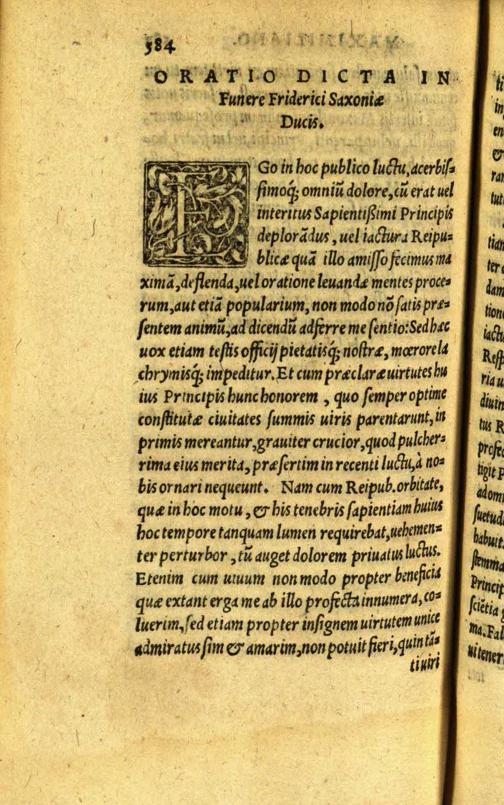 584
ORATIO DICTA IN
Funere Friderici Saxoniæ
Ducis.
EGo in hoc publico luctu, acerbis=
simoq; omniũ dolore, cũ erat uel
interitus Sapientißimi Principis
deplorãdus, uel iactura Reipu=
blicæ quã illo amisso fecimus ma
ximã, deflenda, uel oratione leuandæ mentes proce=
rum, aut etiã popularium, non modo nõ satis præ=
sentem animũ, ad dicendũ adferre me sentio: Sed hæc
uox etiam testis officij pietatisq; nostræ, mœrore la
chrymisq; impeditur. Et cum præclaræ uirtutes hu
ius Principis hunc honorem, quo semper optime
constitutæ ciuitates summis uiris parentarunt, in
primis mereantur, grauiter crucior, quod pulcher=
rima eius merita, præsertim in recenti luctu, à no=
bis ornari nequeunt. Nam cum Reipub. orbitate,
quæ in hoc motu, & his tenebris sapientiam huius
hoc tempore tanquam lumen requirebat, uehemen=
ter perturbor, tũ auget dolorem priuatus luctus.
Etenim cum uiuum non modo propter beneficia
quæ extant erga me ab illo profecta innumera, co=
luerim, sed etiam propter insignem uirtutem unice
admiratus sim & amarim, non potuit fieri, quin tã=
ti uiri